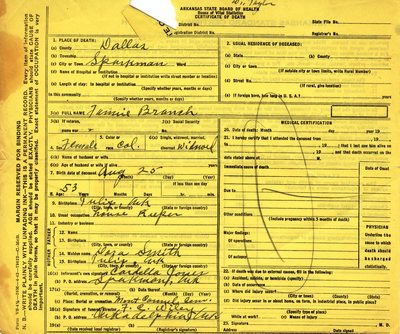 W. Taylor
ARKANSAS STATE BOARD OF HEALTH
Bureau of Vital Statistics
CERTIFICATE OF DEATH
State File No.
Registrar's No.
1. PLACE OF DEATH:
(a) County Dallas
(b) Township
(c) City or Town Sparkman Ward
(d) Name of Hospital or Institution
(If not in hospital or institution write street number or location)
(e) Length of stay: In hospital or institution
(Specify whether years, months or days)
In this community
(Specify whether years, months or days)
2. USUAL RESIDENCE OF DECEASED:
(a) State
(b) County
(c) City or Town
(If outside city or town limits, write Rural)
(d) Street No.
(If rural, give location)
(e) If foreign born, how long in U. S. A.? years
3(a) FULL NAME Branch
3(b) If veteran,
name war
3(c) Social Security
No.
4. Sex Female
5. Color or race Col.
6(a) Single, widowed, married, divorced Widowed
6(b) Name of husband or wife
6(c) Age of husband or wife if alive years
7. Birth date of deceased Aug 20
(Month) (Day) (Year)
8. Age: 53 Years Months Days
If less than one day
hr. min.
9. Birthplace Tulip, Ark
(City, town, or county) (State or foreign country)
10. Usual occupation House Keeper
11. Industry or business
12. Name
13. Birthplace
(City, town, or county) (State or foreign country)
14. Maiden Name Rosa Smith
15. Birthplace Tulip, Ark
(City, town, or county) (State or foreign country)
16(a) Informant's own signature
(b) P. O. address Sparkman, Ark
17(a)
(c) Place: Burial or cremation Mount Carmel Cem.
18(a) Signature of funeral director
(b) P. O. address Arkadelphia, Ark
19(a)
(Date received local registrar) (Registrar's signature)
MEDICAL CERTIFICATION
20. Date of Death: Month day year 19
21. I hereby certify that I attended the deceased from
19 , to , 19 ; that I last saw him alive on
, 19 , and that death occurred on the
date stated above at M.
Immediate cause of death
Due to
Due to
Other conditions
(Include pregnancy within 3 months of death)
Major findings:
Of operations
Of autopsy
PHYSICIAN
Underline the
cause to
which death
should be
charged
statistically
22. If death was due to external causes, fill in the following:
(a) Accident, suicide, or homicide (specify)
(b) Date of occurrence
(c) Where did injury occur?
(City or town) (County) (State)
(d) Did injury occur in or about home, on farm, in industrial place, in public place?
(Specify type of place)
While at work?
(e) Means of injury
23. Signature M. D.
Address Date signed
FATHER
MOTHER
MARGIN RESERVED FOR BINDING
N. B.—WRITE PLAINLY, WITH UNFADING INK—THIS IS A PERMANENT RECORD. Every item of information
should be carefully supplied. AGE should be stated EXACTLY. PHYSICIANS should state CAUSE OF
DEATH in plain terms, so that it may be properly classified. Exact statement of OCCUPATION is very
important.